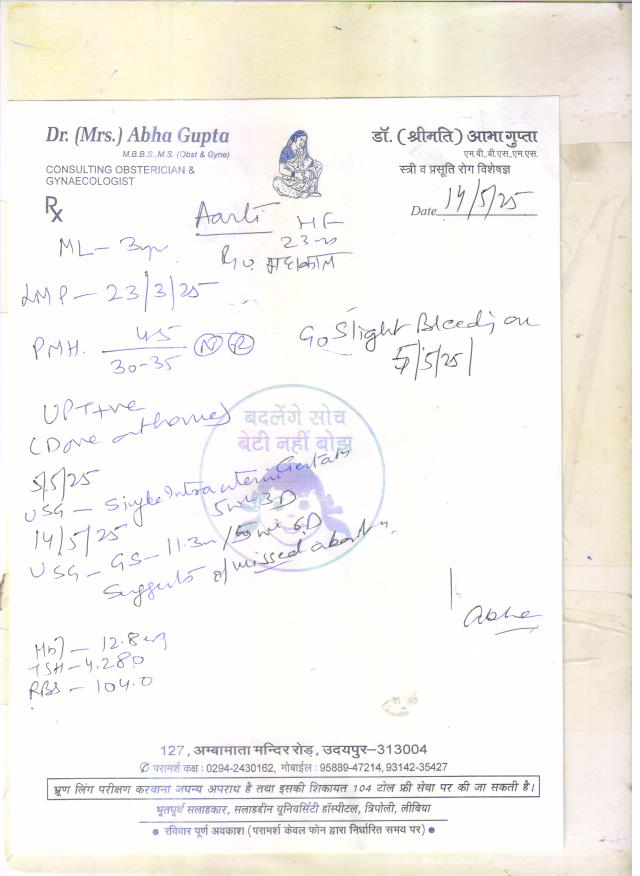 Dr. (Mrs.) Abha Gupta
M.B.B.S., M.S. (Obst & Gyne)
CONSULTING OBSTERICIAN &
GYNAECOLOGIST
डॉ. (श्रीमति) आभा गुप्ता
एम.बी.बी.एस.एम.एस.
स्त्री व प्रसूति रोग विशेषज्ञ
Date 14/5/25
Rx
Aarti
ML – 3yr.
महाकाल
LMP – 23/3/25
PMH. 45
30-35 (N) (R)
Slight Bleeding on
5/5/25
UPT +ve
(Done at home)
बदलेंगे सोच
बेटी नहीं बोझ
5/5/25
USG – Single Intra uterine
5wk 3D
14/5/25
USG – GS – 11.3m / 5wk 6D
Suggests of missed abortion.
Abha
Hb) – 12.8
TSH – 4.280
RBS – 104.0
127, अम्बामाता मन्दिर रोड़, उदयपुर–313004
परामर्श कक्ष : 0294-2430162, मोबाईल : 95889-47214, 93142-35427
भ्रूण लिंग परीक्षण करवाना जघन्य अपराध है तथा इसकी शिकायत 104 टोल फ्री सेवा पर की जा सकती है।
भूतपूर्व सलाहकार, सलाहद्दीन यूनिवर्सिटी हॉस्पीटल, त्रिपोली, लीबिया
• रविवार पूर्ण अवकाश (परामर्श केवल फोन द्वारा निर्धारित समय पर) •